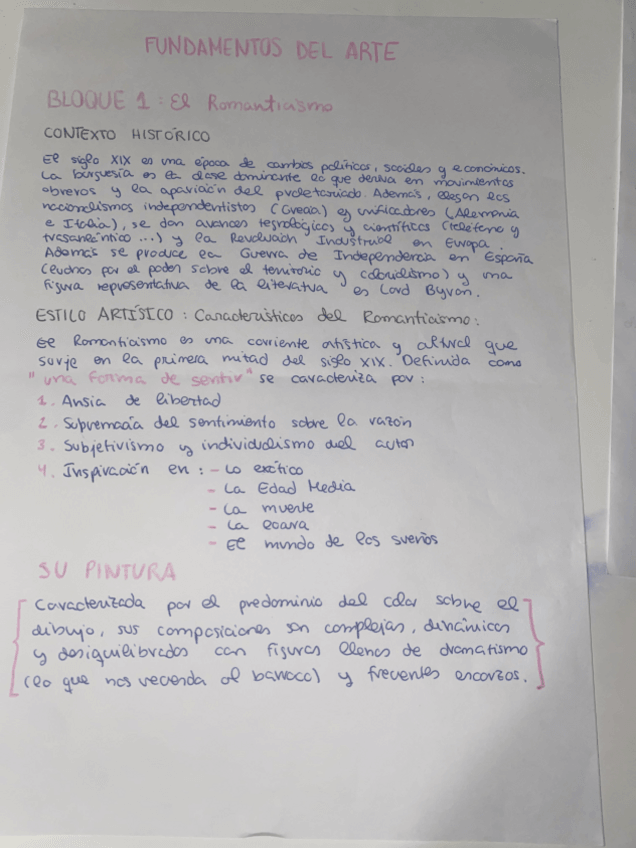 FUNDAMENTOS DEL ARTE
BLOQUE 1: El Romanticismo
CONTEXTO HISTÓRICO
El siglo XIX es una época de cambios políticos, sociales y económicos.
La burguesía es la clase dominante lo que deriva en movimientos
obreros y la aparición del proletariado. Además, llegan los
nacionalismos independentistas (Grecia) y unificadores (Alemania
e Italia), se dan avances tegnológicos y científicos (teléfono y
trasanlántico ...) y la Revolución Industrial en Europa.
Además se produce la Guerra de Independencia en España
(luchas por el poder sobre el territorio y colonialismo) y una
figura representativa de la literatura es Lord Byron.
ESTILO ARTÍSICO: Características del Romanticismo:
El Romanticismo es una corriente artística y cultural que
surje en la primera mitad del siglo XIX. Definida como
"una forma de sentir" se caracteriza por:
1. Ansia de libertad
2. Supremacía del sentimiento sobre la razón
3. Subjetivismo y individualismo del autor
4. Inspiración en: - Lo exótico
- La Edad Media
- La muerte
- La locura
- El mundo de los sueños
SU PINTURA
Caracterizada por el predominio del color sobre el
dibujo, sus composiciones son complejas, dinámicas
y desiquilibradas con figuras llenas de dramatismo
(lo que nos recuerda al barroco) y frecuentes escorzos.